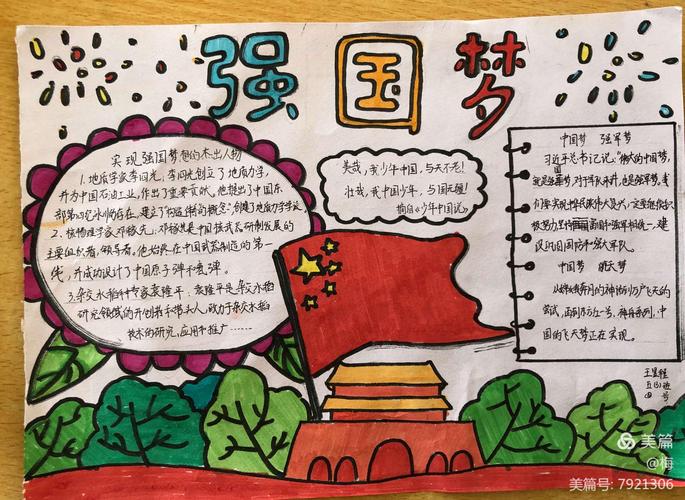 强国梦
实现强国梦想的杰出人物
1.地质学家李四光，李四光创立了地质力学，
并为中国石油工业，作出了重要贡献，他提出了中国东
部第四纪冰川的存在，建立了"构造体系概念"创建了地质力学学派。
2.核物理学家邓稼先，邓稼先是中国核武器研制发展的
主要组织者，领导者。他始终在中国武器制造的第一
线，并成功设计了中国原子弹和氢弹。
3.杂交水稻种专家袁隆平，袁隆平是杂交水稻
研究领域的开创者和带头人，致力于杂交水稻
技术的研究，应用和推广……
美哉，我少年中国，与天不老！
壮哉，我中国少年，与国无疆！
摘自《少年中国说》
中国梦 强军梦
习近平总书记说："伟大的中国梦，
就是强国梦，对于军队来讲，也是强军梦，我
们要实现中华民族伟大复兴，一定要坚持
富国和强军相统一，建
设巩固国防和强大军队。
中国梦 航天梦
从嫦娥奔月的神话到万户飞天的
尝试，
中
国的飞天梦正在实现。
王
五(3)班
号
美篇
@梅
美篇号: 7921306